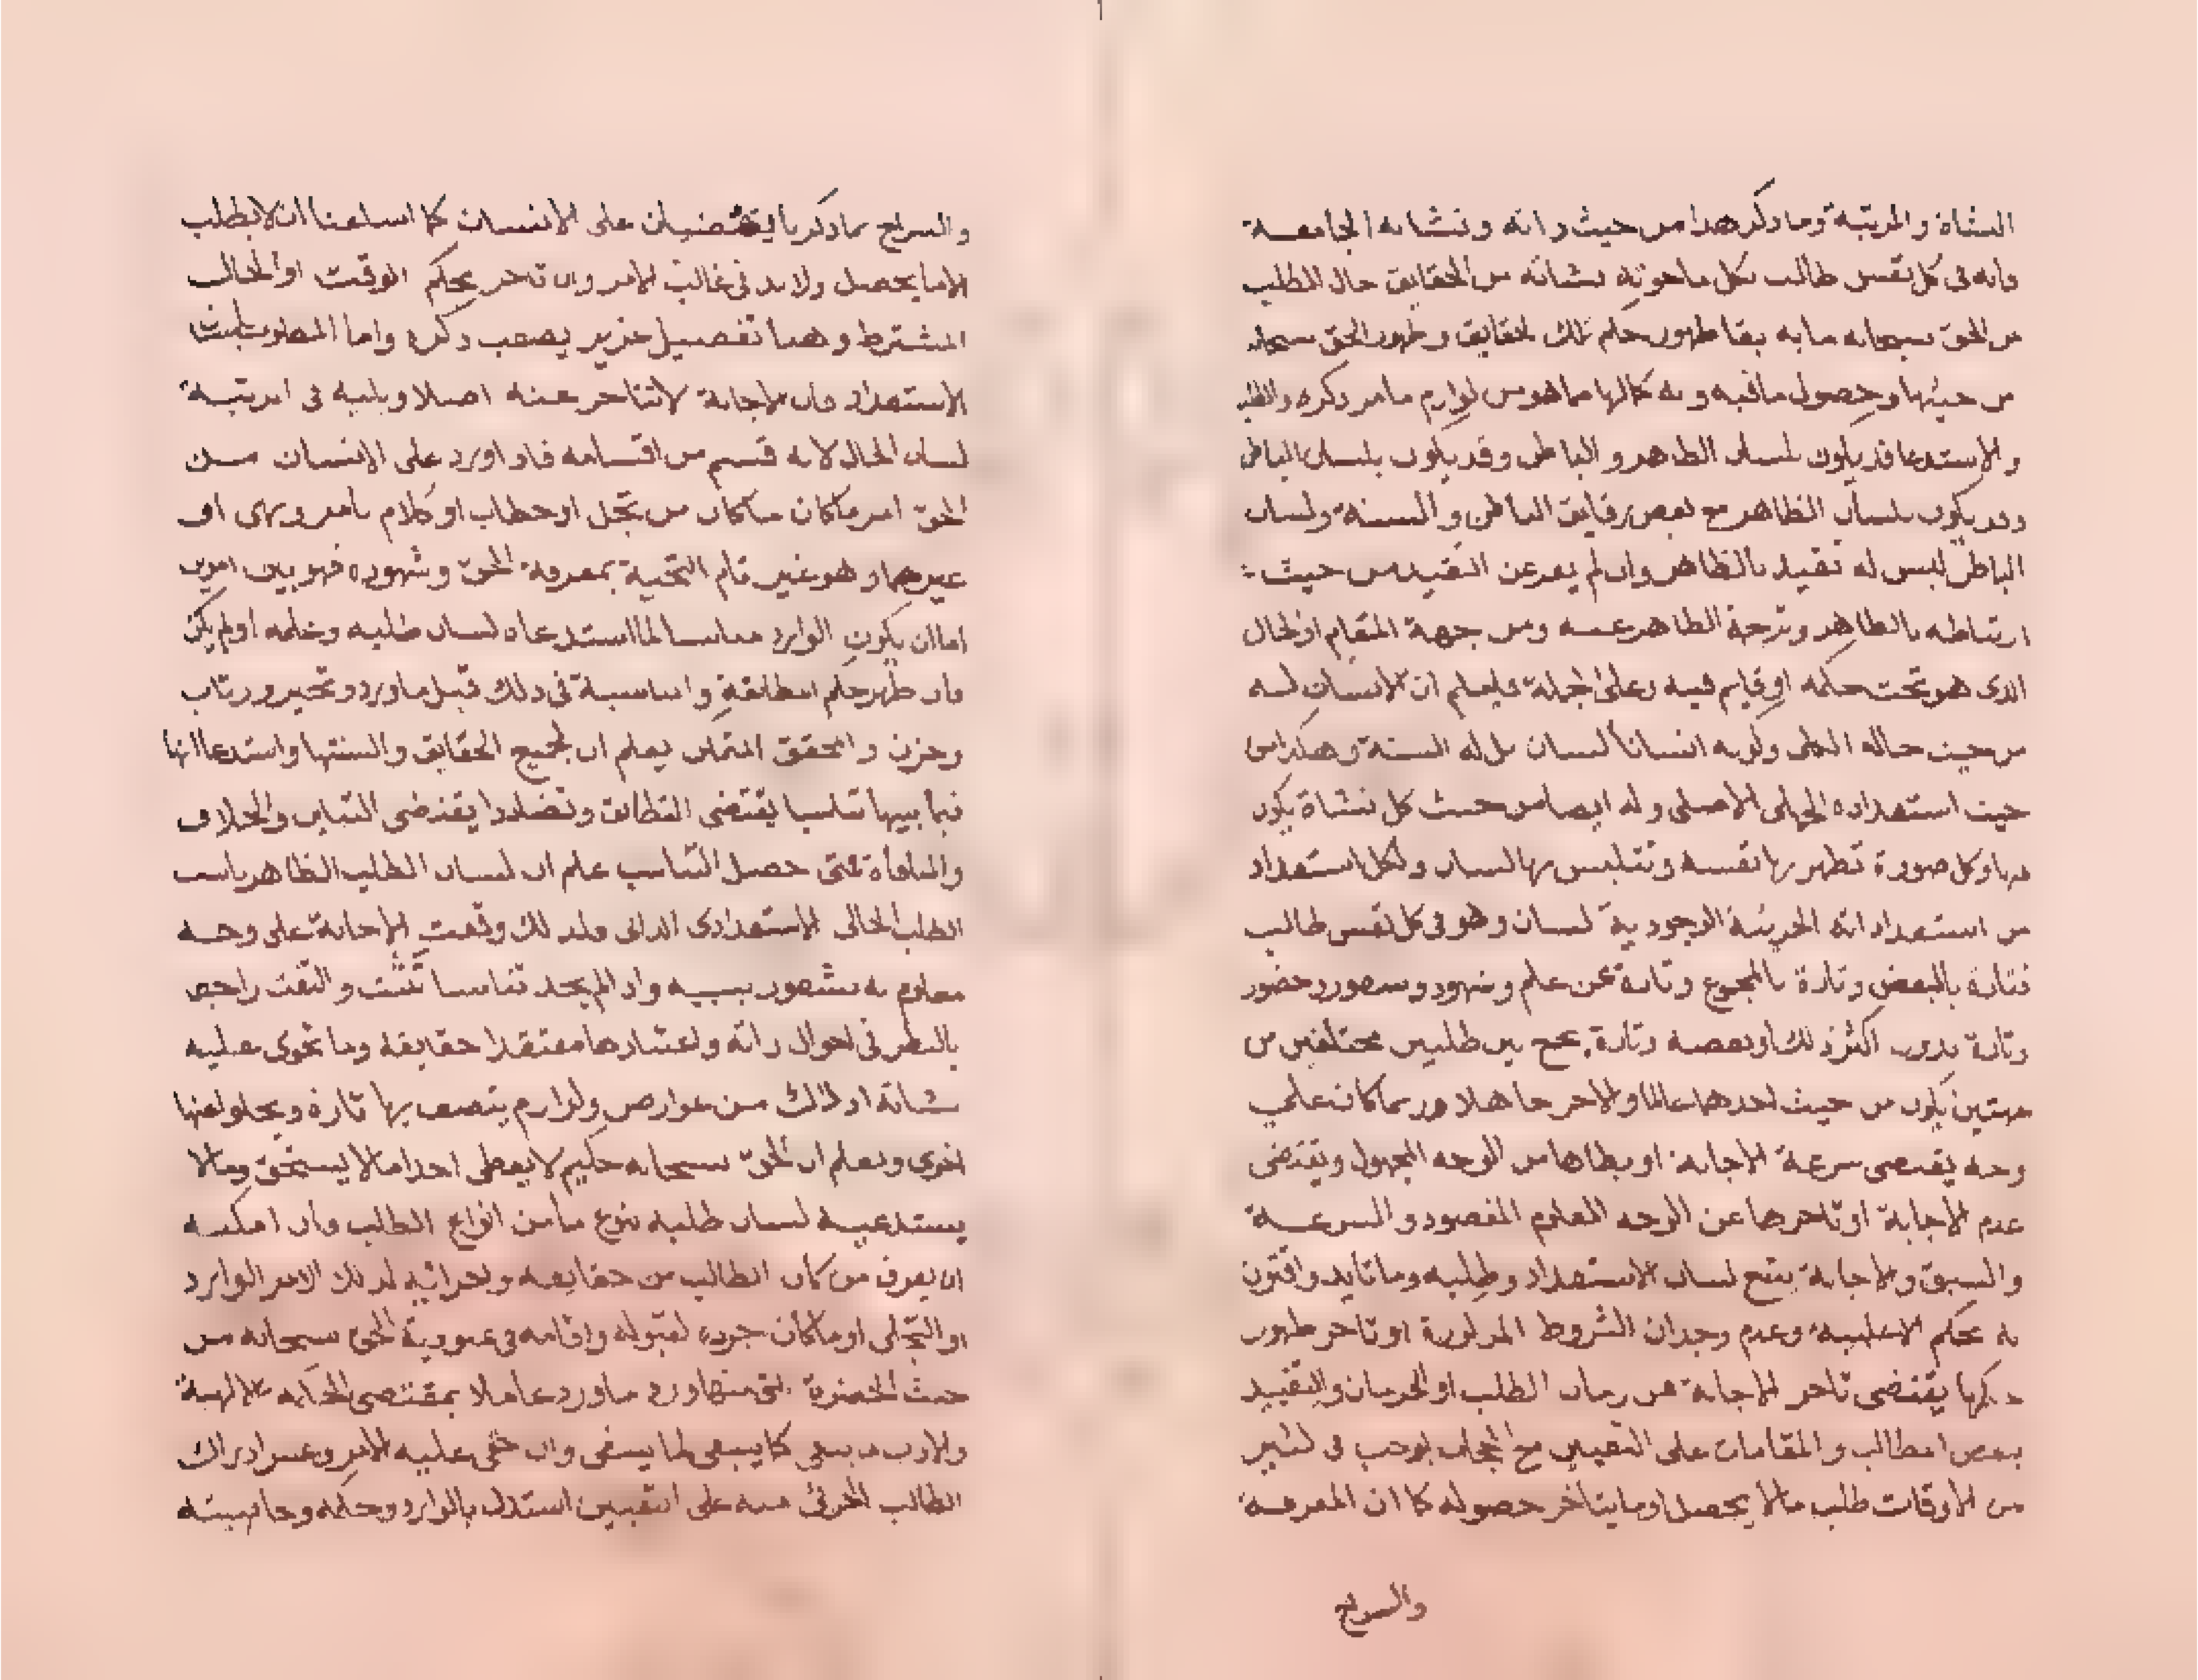 النشاة والمرتبة وما ذكر هذا من حيث ذاته ونشاته الجامعة
وانه فى كل نفس طالب بكل ما حوته نشاته من الحقايق حال الطلب
من الحق سبحانه ما به بقا ظهور حكم تلك الحقايق وظهور الحق سبحانه
من حيثها وحصول ما فيه وبه كمالها مما هو من لوازم ما مر ذكره والطلب
والاستدعا قد يكون بلسان الظاهر والباطن وقد يكون بلسان الباطن
وقد يكون بلسان الظاهر مع بعض رقايق الباطن والسنة ولسان
الباطن ليس له تقيد بالظاهر وان لم يعر عن التقيد من حيث
ارتباطه بالظاهر وترجمة الظاهر عنه ومن جهة المقام او الحال
الذى هو تحت حكمه او قايم فيه وعلى الجملة فليعلم ان الانسان له
من حيث حاله الكلى وكونه انسانا لسان بل له السنة وهكذا من
حيث استعداده الجملى الاصلى وله ايضا من حيث كل نشاة يكون
فيها وكل صورة تظهر بها نفسه وتتلبس بها لسان ولكل استعداد
من استعداداته الجزئية الوجودية لسان وهو فى كل نفس طالب
فتارة بالبعض وتارة بالمجموع وتارة عن علم وشهود وشعور وحضور
وتارة بدون اكثر ذلك او بعضه وتارة يجمع بين طلبين مختلفين من
جهتين يكون من حيث احدهما عالما والاخر جاهلا وربما كان على
وجه يقتضى سرعة الاجابة او بطاها من الوجه المجهول ويقتضى
عدم الاجابة او تاخرها عن الوجه المعلوم المقصود والسرعة
والسبق والاجابة يتبع لسان الاستعداد وطلبه وما تايد واقترن
به بحكم الاغلبية وعدم وجدان الشروط المذكورة او تاخر ظهور
حكمها يقتضى تاخر الاجابة عن زمان الطلب او الحرمان والتقييد
ببعض المطالب والمقامات على التعيين مع الحجاب يوجب فى كثير
من الاوقات طلب ما لا يحصل او ما يتاخر حصوله كما ان المعرفة
والسراح
والسراح مما ذكرنا يقتضيان على الانسان كما اسلفنا ان لا يطلب
الا ما يحصل ولا بد فى غالب الامر وان تاخر بحكم الوقت او الحال
المشترط وهنا تفصيل عزيز يصعب ذكره واما المطلوب بلسان
الاستعداد فان الاجابة لا تتاخر عنه اصلا ويليه فى المرتبة
لسان الحال لانه قسم من اقسامه فاذا ورد على الانسان من
الحق امر ما كان ما كان من تجل او خطاب او كلام بامر ونهى او
غيرهما وهو غير تام التحية بمعرفة الحق وشهوده فهو بين امرين
اما ان يكون الوارد مناسبا لما استدعاه لسان طلبه وعلمه او لم يكن
فان ظهر حكم المطابقة والمناسبة فى ذلك قبل ما ورد وتحير وارتاب
وحزن والمحقق المتمكن يعلم ان لجميع الحقايق والسنتها واستدعااتها
فيما بينها تناسبا يقتضى التطابق وتضاددا يقتضى التباين والخلاف
والمنافاة فمتى حصل التناسب علم ان لسان الطلب الظاهر ناسب
الطلب الحالى الاستعدادى الذاتى فلذلك وقعت الاجابة على وجه
معلوم به شعور بسببه واذا لم يجد تناسبا تثبت والتفت راجعا
بالنظر فى احوال ذاته واعتبارها مفتقدا حقايقه وما تحوى عليه
نشاته اذ ذلك من عوارض ولوازم يتصف بها تارة ويخلو عنها
اخرى ويعلم ان الحق سبحانه حكيم لا يعطى احدا ما لا يستحق وما لا
يستدعيه لسان طلبه بنوع ما من انواع الطلب وان امكنه
ان يعرف من كان الطالب من حقايقه واجزائه لذلك الامر الوارد
او التجلى او ما كان جرده لقبوله واقامه فى عبودية الحق سبحانه من
حيث الحضرة التى منها ورد ما ورد عاملا بمقتضى الحكمة الالهية
والادب ما ينبغى كما ينبغى لما ينبغى وان خفى عليه الامر وعسر ادراك
الطالب الجزئى منه على التعيين استدل بالوارد وحكمه وخاصيته